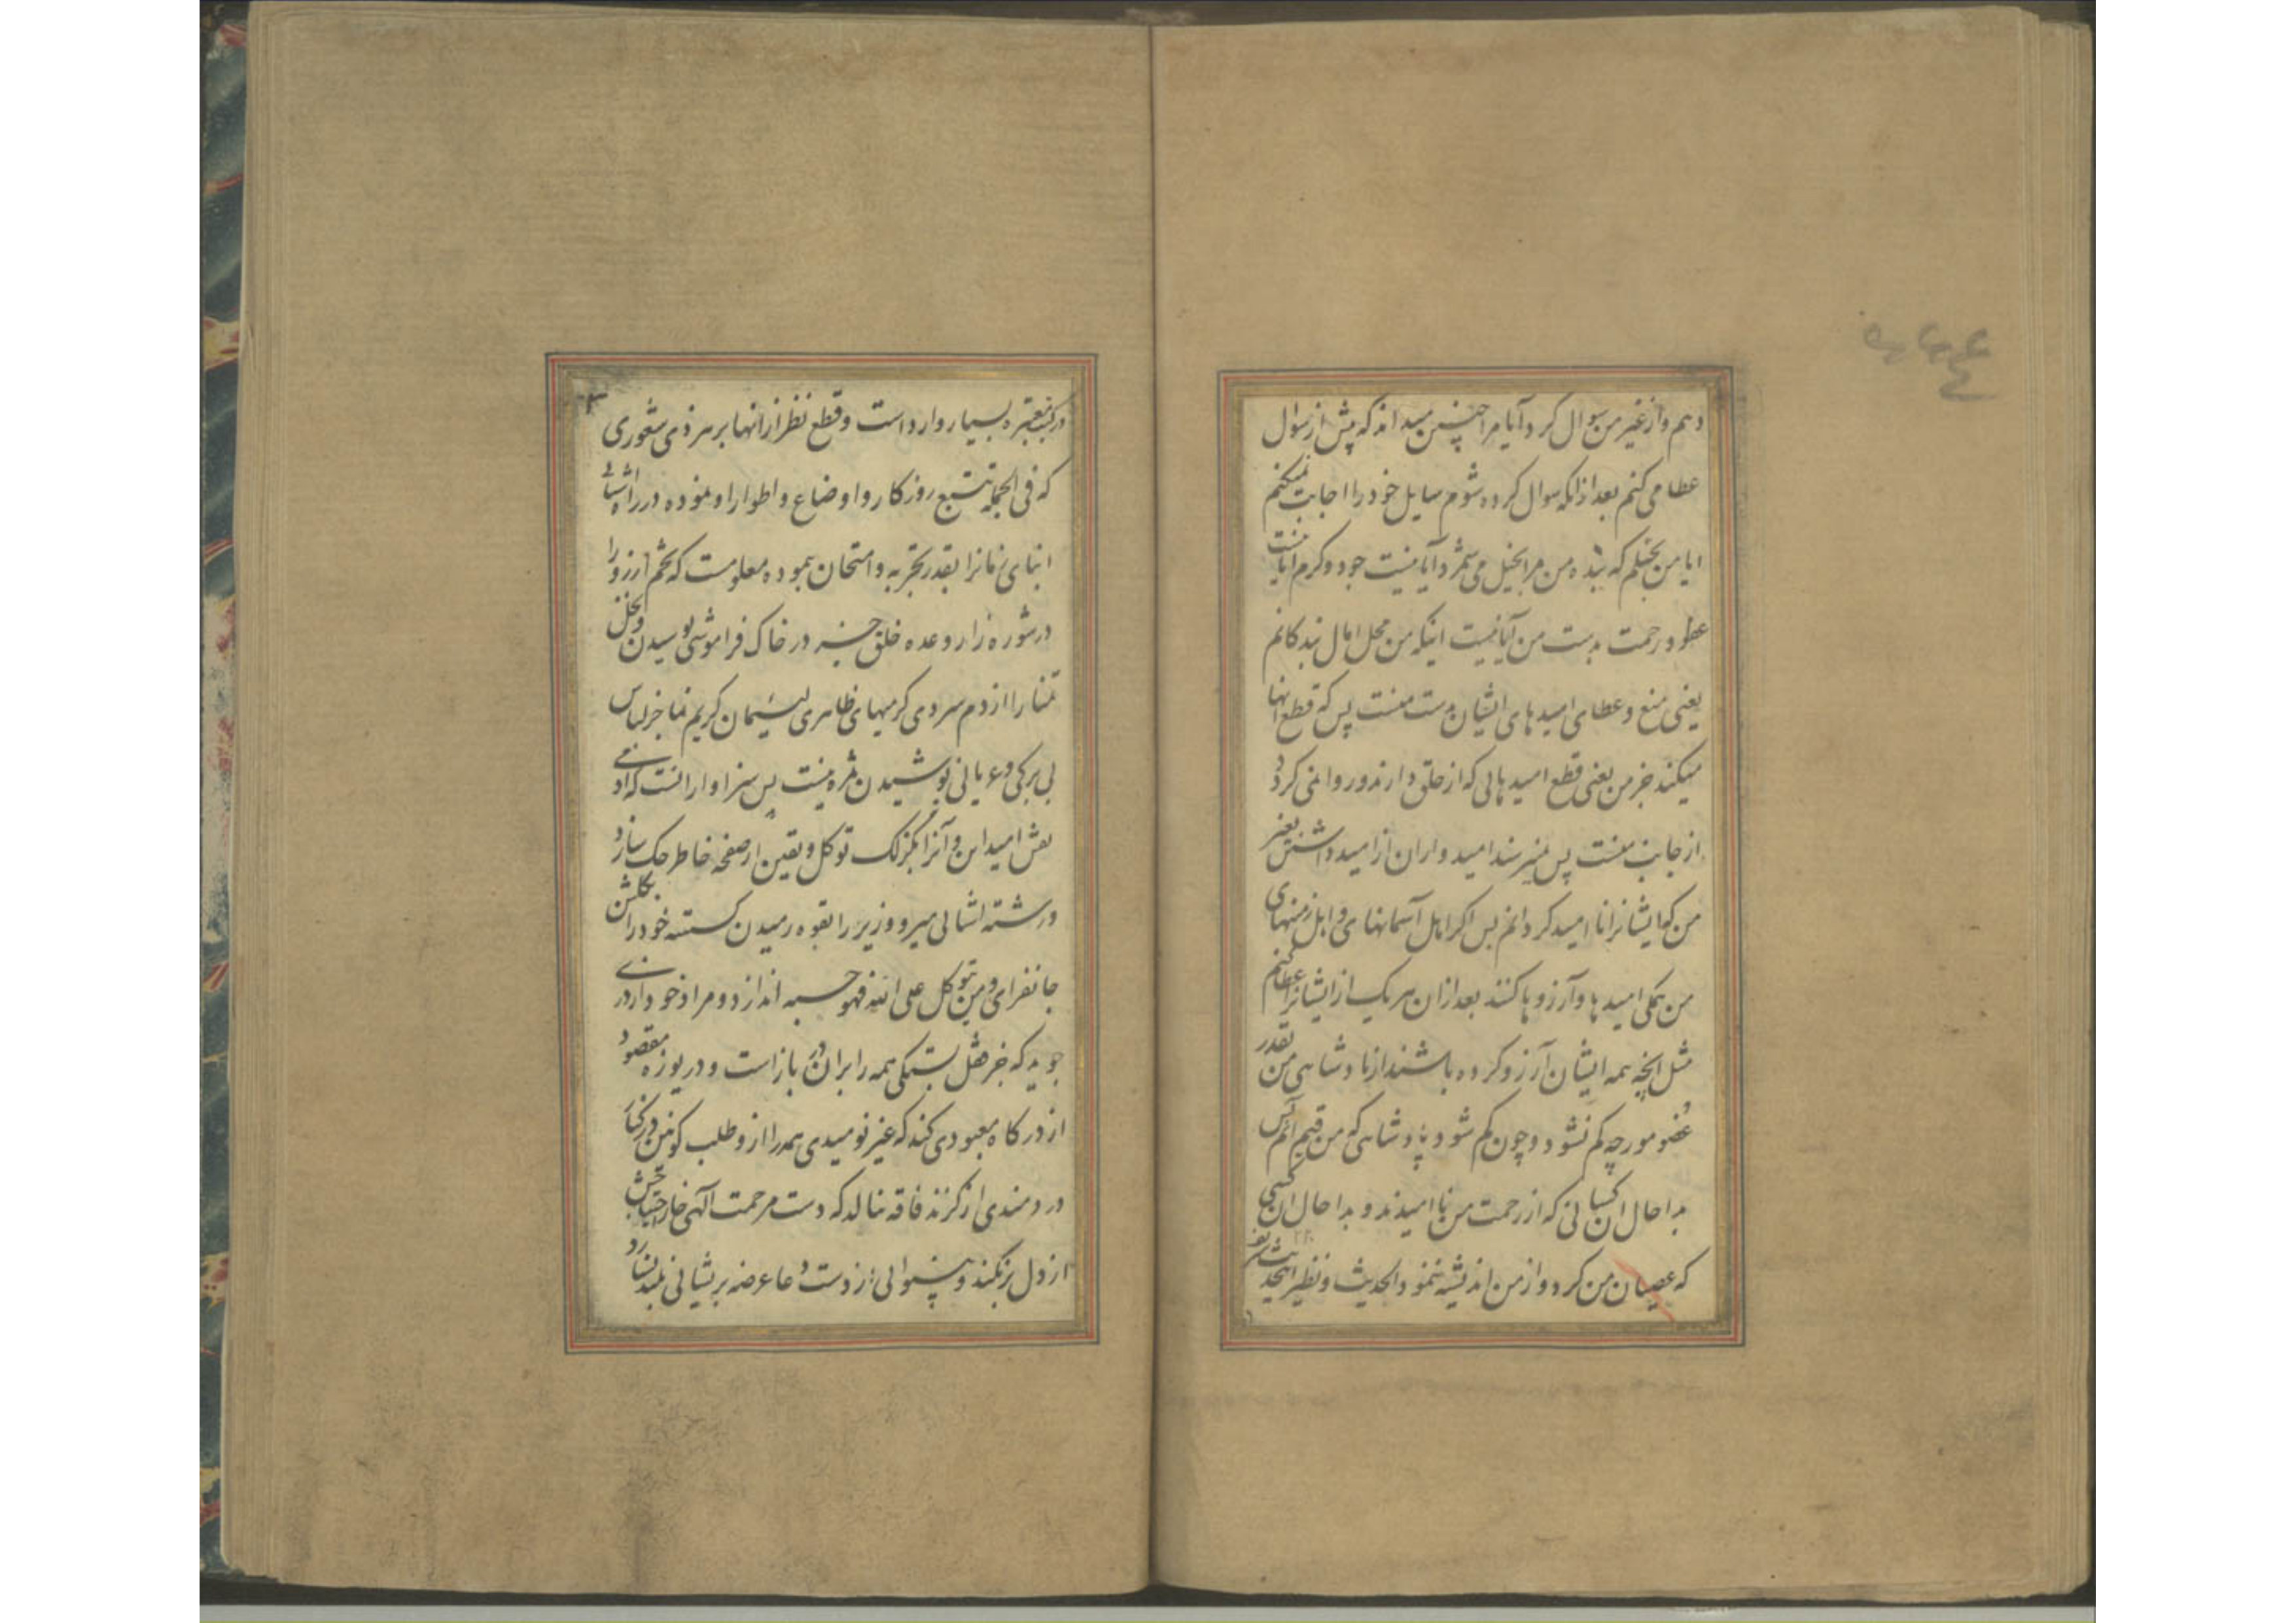 دهم و از غیر من سوال کرد و آیا مرا چنین میداند که پیش از سوال
عطا می کنم بعد از انکه سوال کرده شوم سایل خود را اجابت نمیکنم
ایا من بخیلم که بنده من مرا بخیل می شمرد و آیا نیست جود و کرم ایا نیست
عفو و رحمت بدست من آیا نیست اینکه من محل امال بندکانم
یعنی منع و عطای امید های ایشان بدست منست پس که قطع انها
میکند جز من یعنی قطع امید هائی که از خلق دارند و روا نمی کردد
از جانب منست پس نمیترسند امید واران از امید داشتن بغیر
من که ایشانرا نا امید کردانم پس اکر اهل آسمانهای و اهل زمینهای
من همکی امید ها و آرزو ها کنند بعد از ان هر یک از ایشانرا عطا کنم
مثل انچه همه ایشان آرزو کرده باشند از پادشاهی من بقدر
عضو مورچه کم نشود و چون کم شود پادشاهی که من قیم آنم پس
بدا حال ان کسانی که از رحمت من نا امیدند و بدا حال ان کسی
که عصیان من کرد و از من اندیشه ننمود الحدیث و نظیر این حدیث
در کتب معتبره بسیار وارد است و قطع نظر از انها بر هر ذی شعوری
که فی الجمله تتبع روزکار و اوضاع و اطوار او نموده در راه
ابنای زمانرا بقدر تجربه و امتحان نموده معلومست که تخم آرزو را
در شوره زار وعده خلق جز در خاک فراموشی پوسیدن و نخل
تمنا را از دم سردی کرمیهای ظاهری لئیمان کریم نما جز لباس
بی برکی و عریانی پوشیدن ثمره نیست پس سزاوار انست که آدمی
نقش امید این و آنرا بکزلک توکل و یقین از صفحه خاطر حک سازد
و رشته میر و وزیر را بقوه رمیدن کسسته خود را بکلشن
جانفزای و من یتوکل علی الله فهو حسبه اندازد و مراد خود از دری
جوید که جز قفل بستکی همه را بران در باز است و دریوزه مقصود
از درکاه معبودی کند که غیر نومیدی همه را ازو طلب کونین در کنار
دردمندی از کزند فاقه ننالد که دست مرحمت آلهی خار احتیاجش
از دل بر نکند و بینوائی از دست دعا عرضه پریشانی بلند نسازد